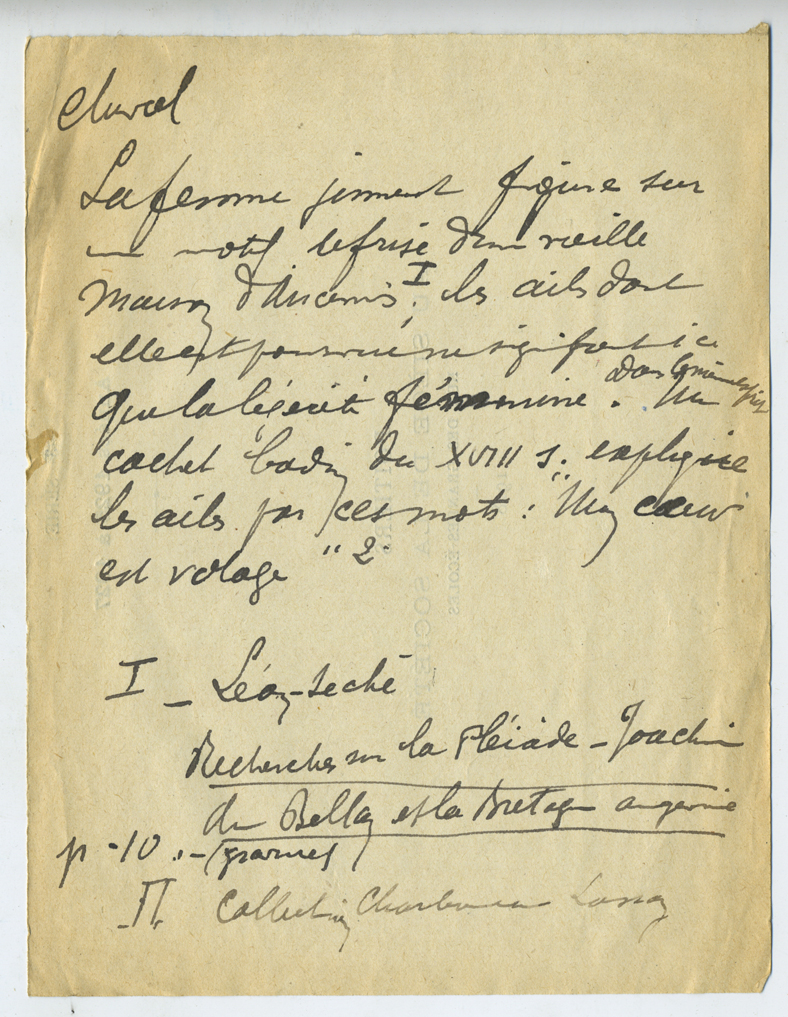 cheval
La femme jument figure sur
un motif de frise d'une vieille
maison d'Ancenis I, les ailes dont
elle est pourvue ne signifient ici
que la légèreté féminine. dans le même esprit Un
cachet badin du XVIII s. explique
les ailes par ces mots : "Mon cœur
est volage" 2.
I - Léon-Seché
Recherches sur la Pléiade - Joachim
du Bellay et la Bretagne angevine
p - 10. - (gravures)
II. Collection Charbonneau Lassay